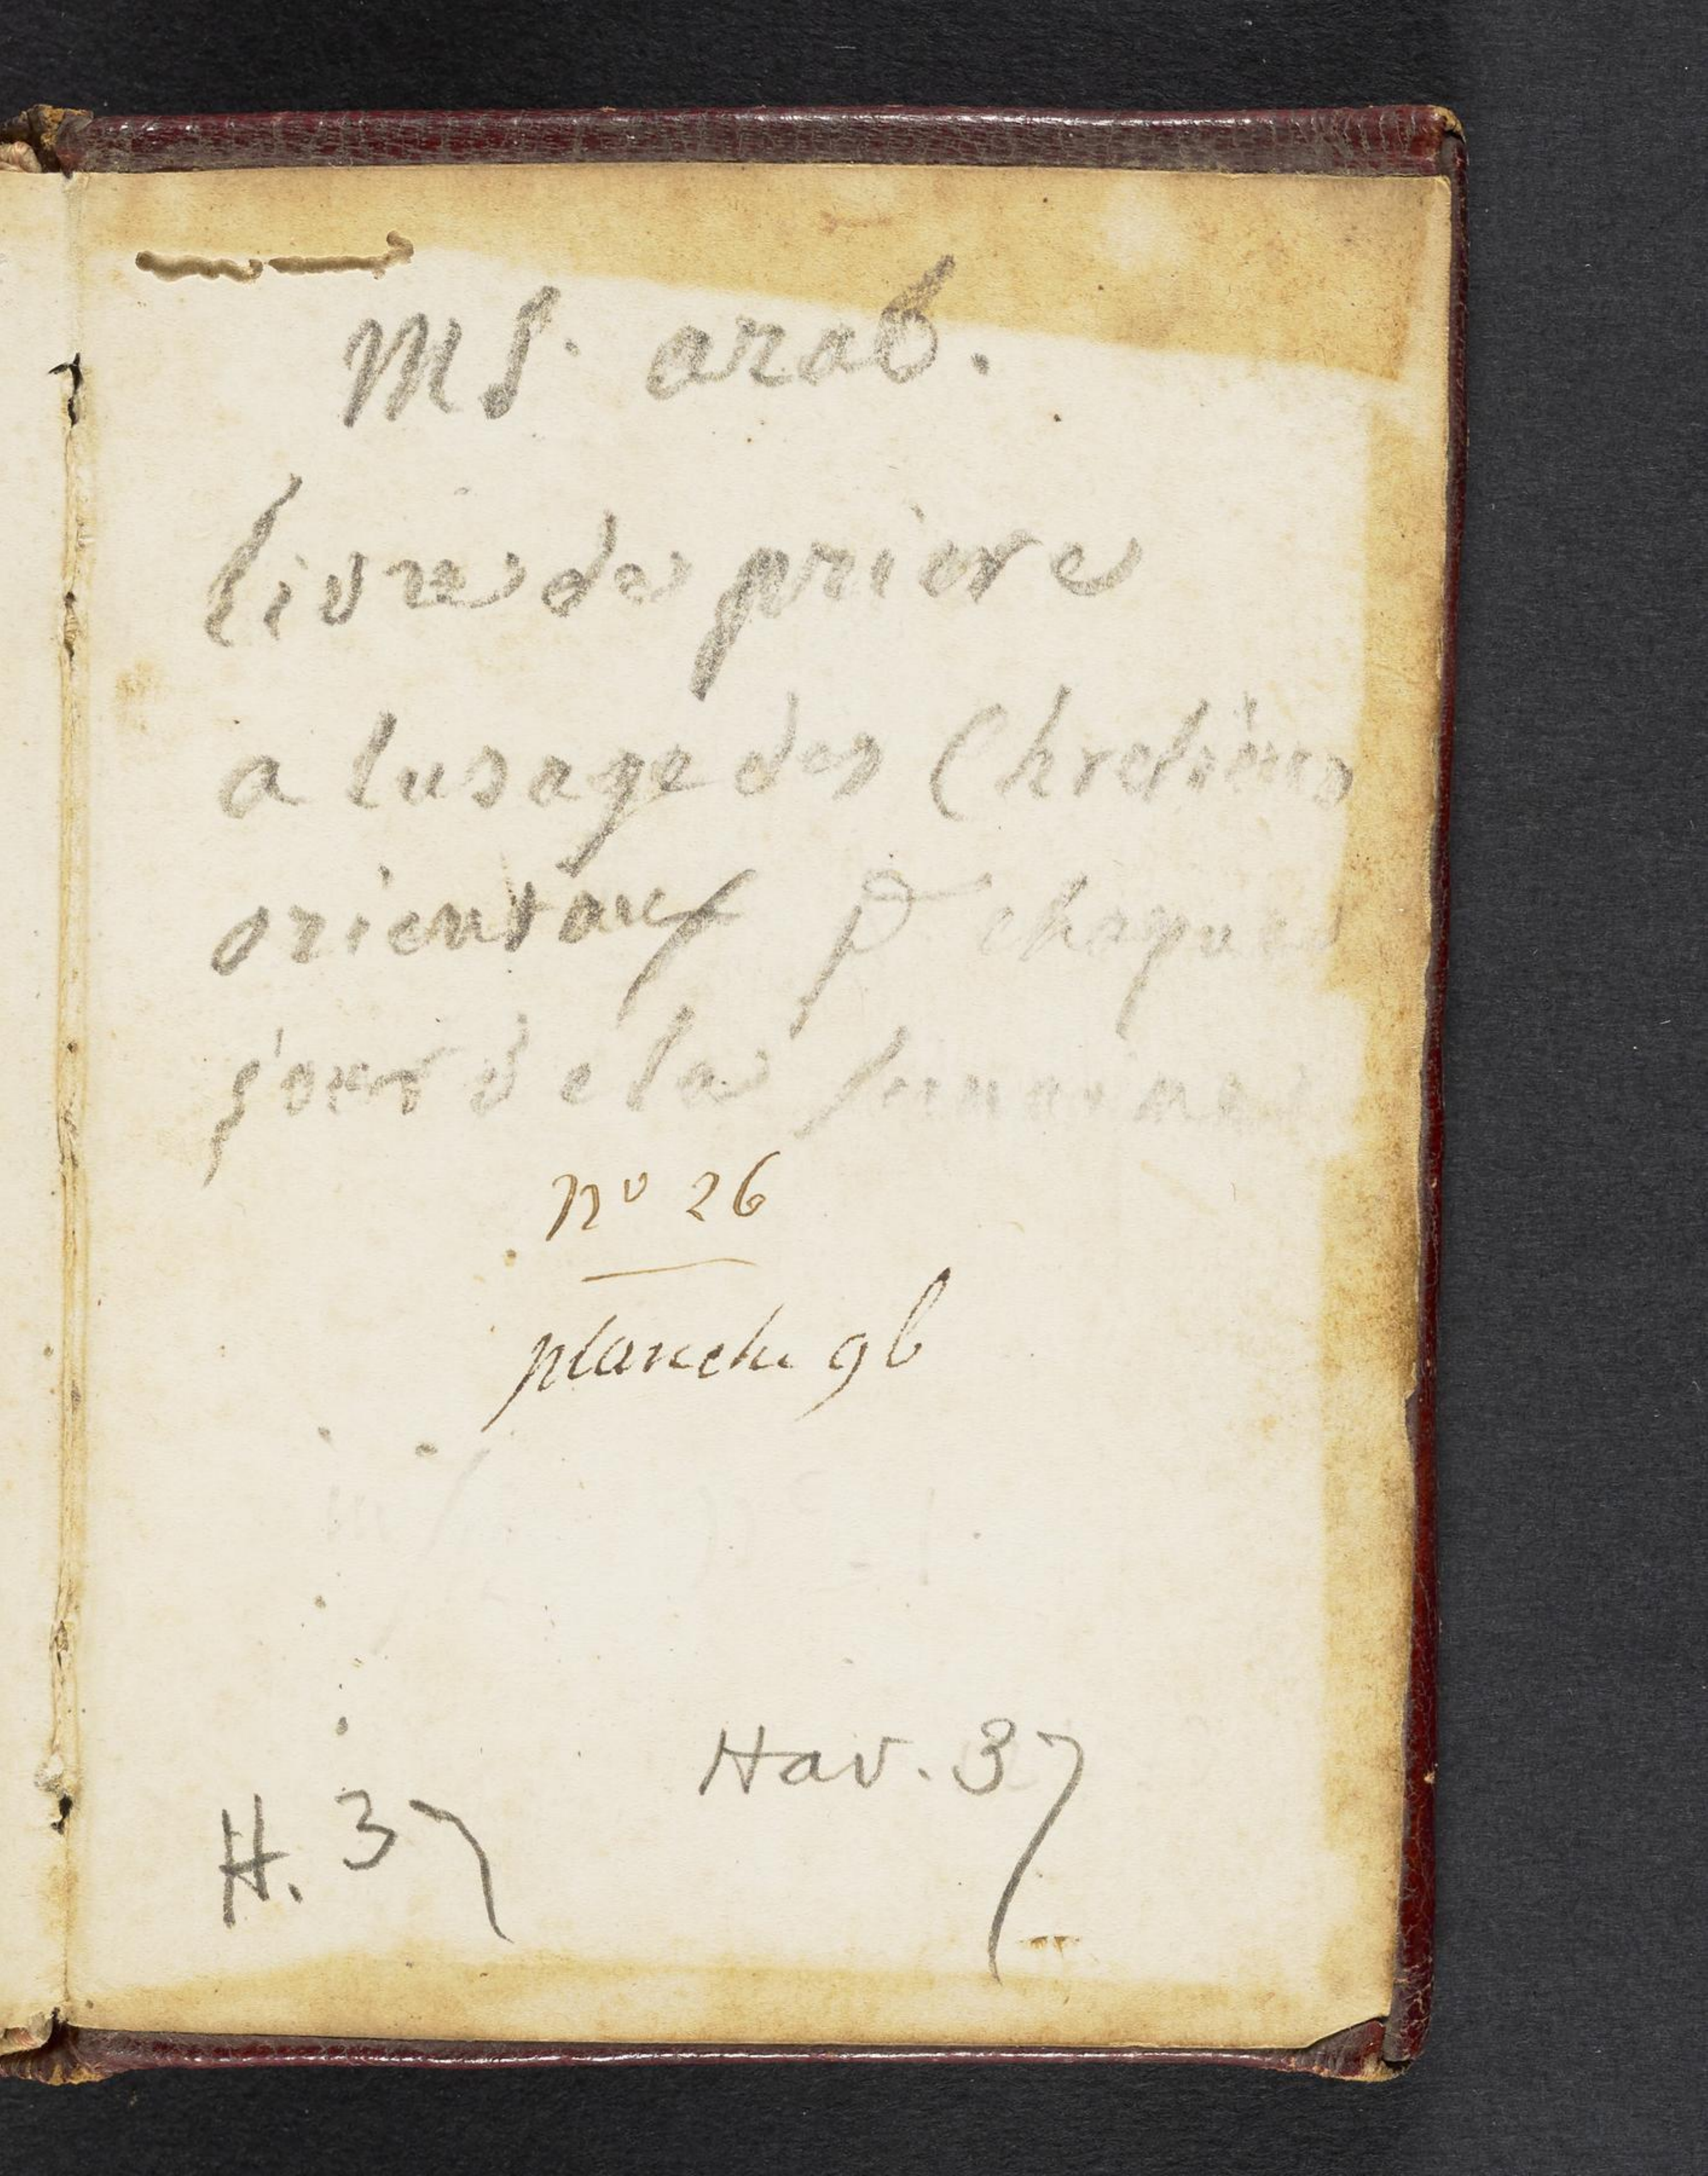 MS. arab.
livre de priere
a lusage des Chretiens
orientaux pr chaque
jour de la
no 26
planche 9b
Hav. 37
H. 37